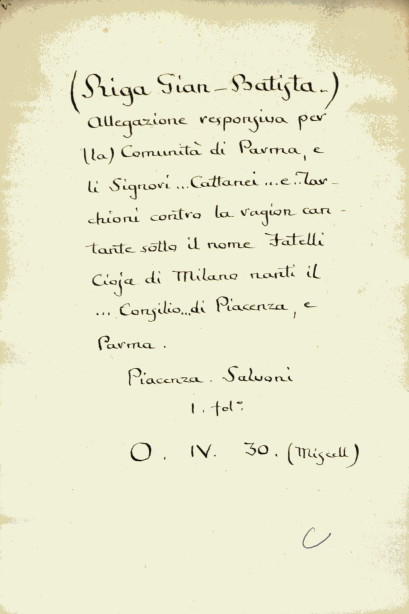 (Riga Gian-Batista.)
Allegazione responsiva per
(la) Comunità di Parma, e
li Signori ... Cattanei ... e.. Tar-
chioni contro la ragion can-
tante sotto il nome Fatelli
Cioja di Milano nanti il
... Consilio... di Piacenza, e
Parma.
Piacenza. Salvoni
1. fol°.
O. IV. 30. (Miscell)
C